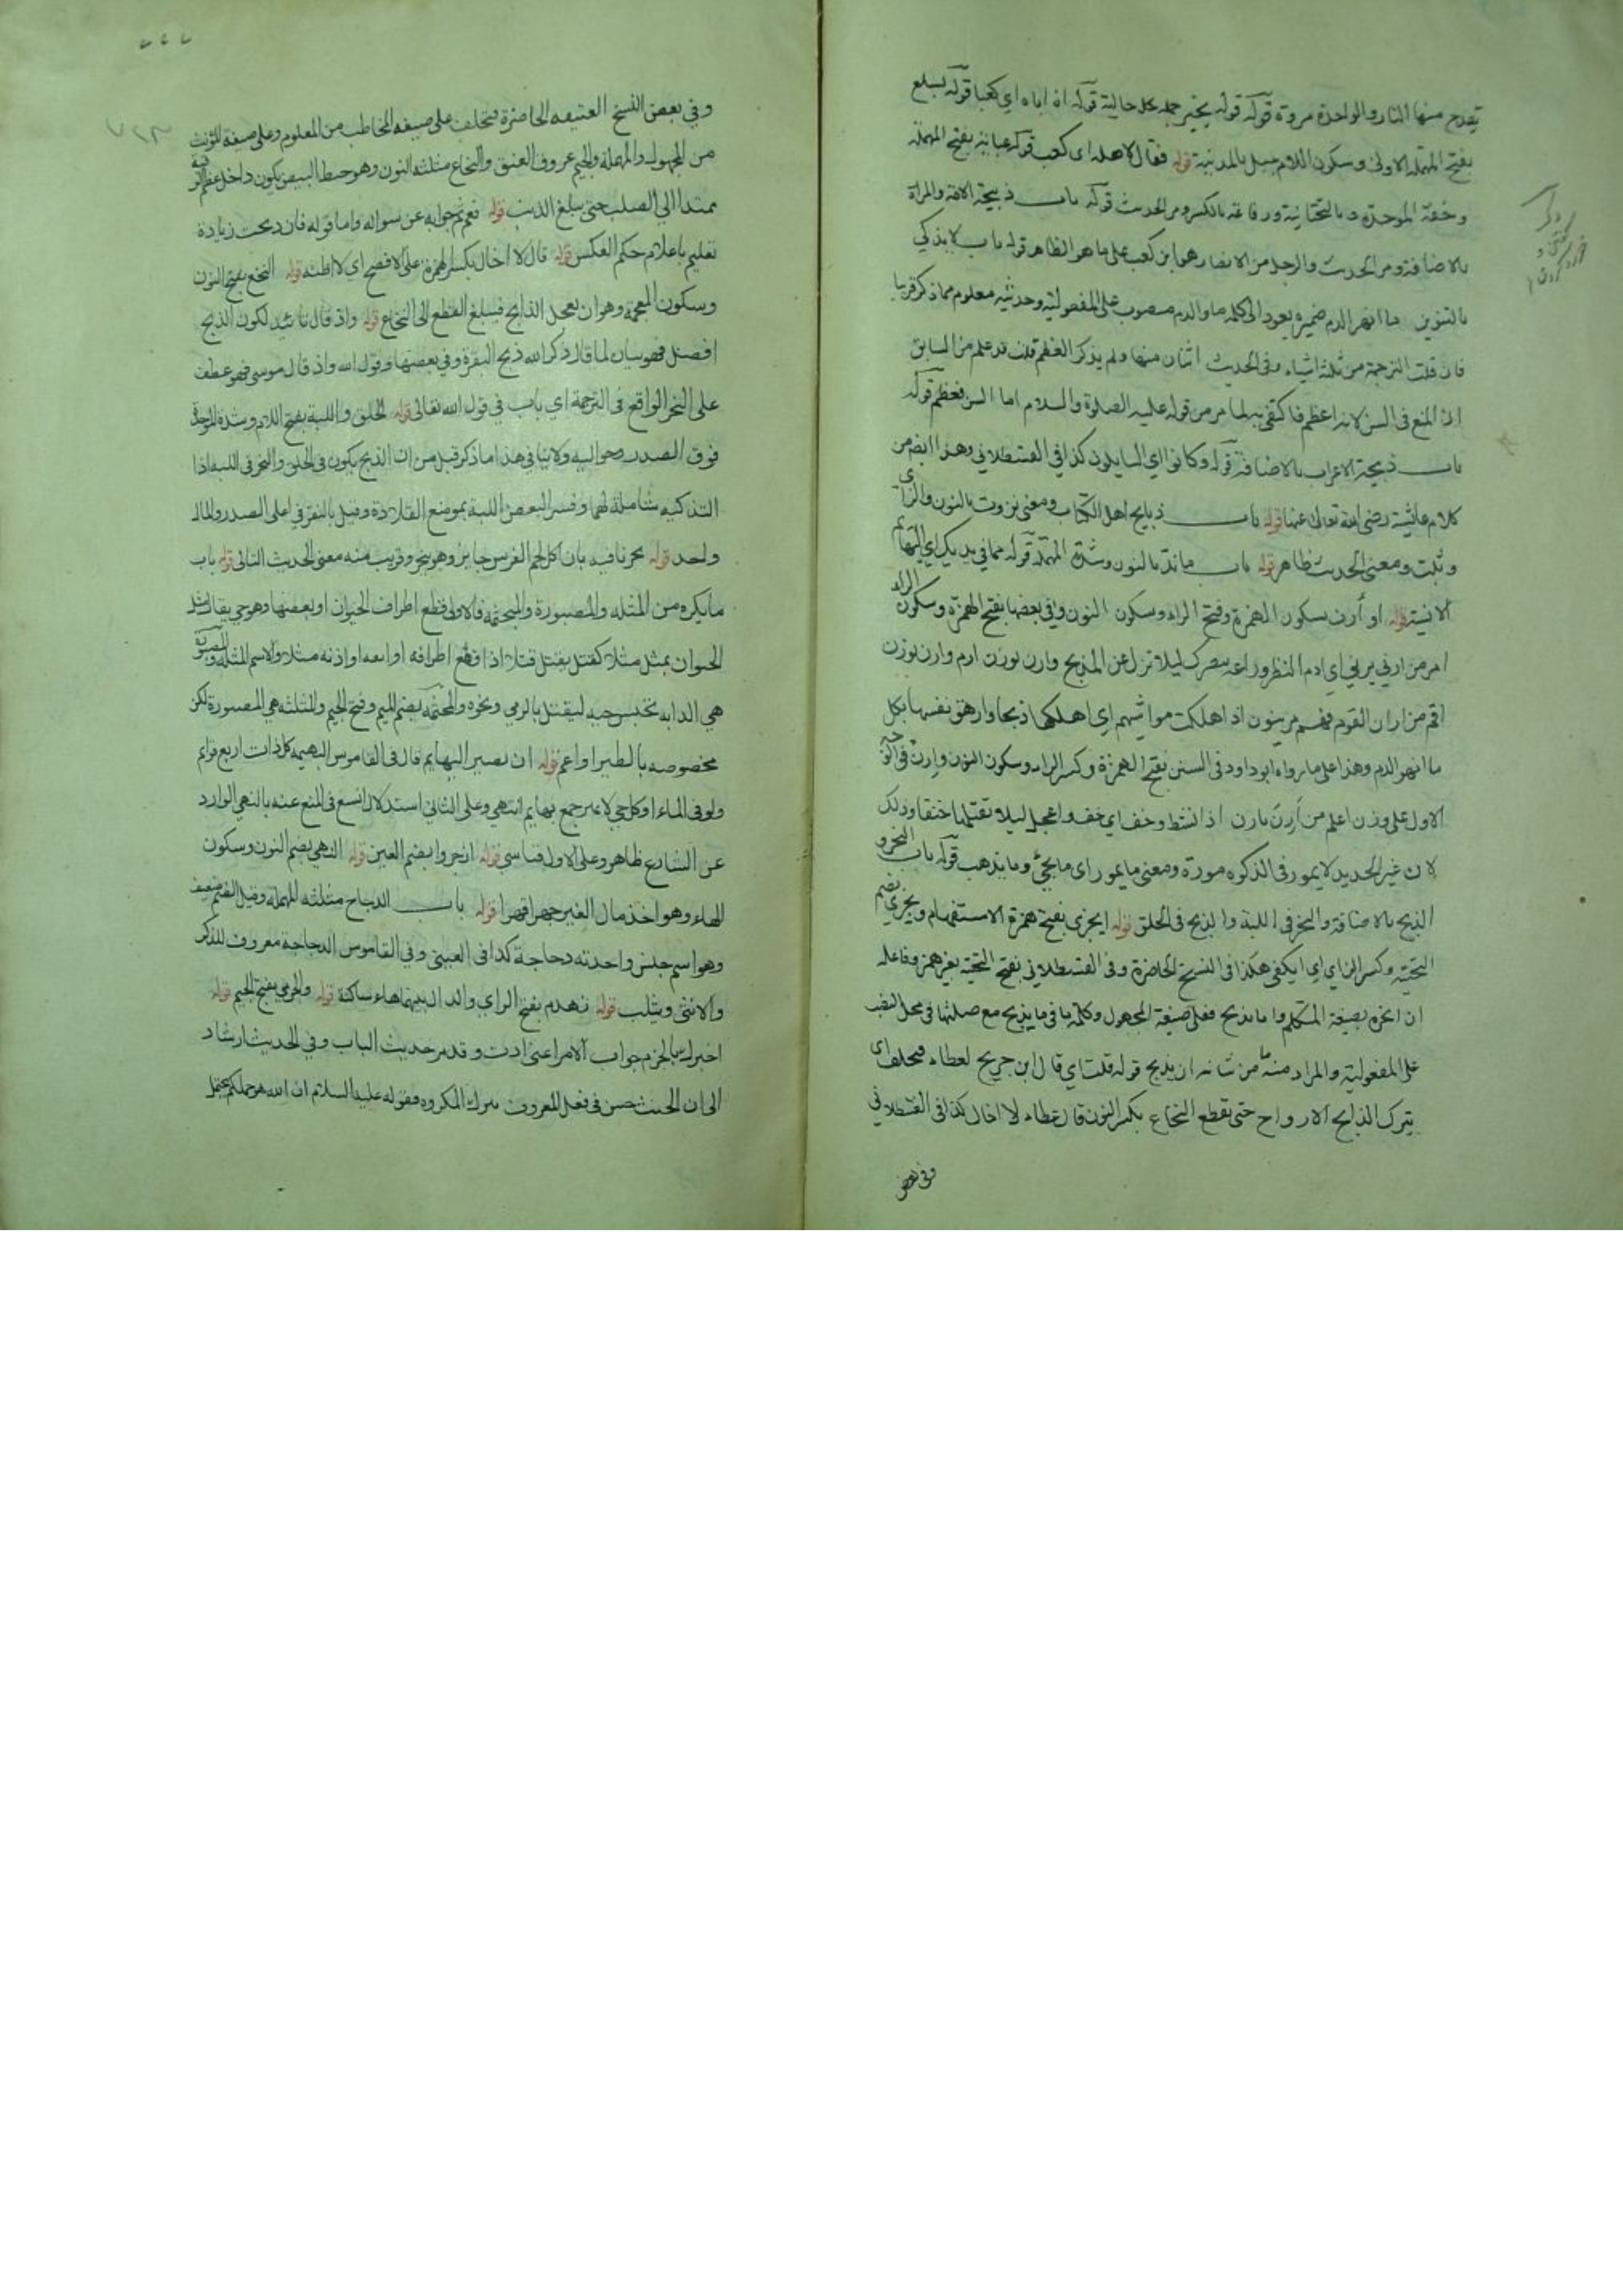 يقدح منها النار والواحدة مروة قوله قوله بخير جملة حالية قوله اذ اباه اي كعبا قوله بسلع
بفتح المهملة الاولى وسكون اللام جبل بالمدينة قوله فقال لاهله اى كعب قوله عباية بفتح المهملة
وخفة الموحدة وبالتحتانية ورفاعة بالكسر ومر الحديث قوله باب ذبيحة الامة والمراة
بالاضافة ومر الحديث والرجل من الانصار هو ابن كعب على ما هو الظاهر قوله باب لا يذكي
بالتنوين ما انهر الدم ضميره يعود الى كلمة ما والدم منصوب على المفعولية وحديثه معلوم مما ذكر قريبا
فان قلت الترجمة من ثلثة اشياء وفى الحديث اثنان منها ولم يذكر العظم قلت قد علم من السابق
ان المنع فى السن لانه اعظم فاكتفى به لما مر من قوله عليه الصلوة والسلام اما السن فعظم قوله
باب ذبيحة الاعراب بالاضافة قوله وكانوا اي السايلون كذا في القسطلاني وهذا ايضا من
كلام عائشة رضى الله تعالى عنها قوله باب ذبايح اهل الكتاب ومعنى نزوت بالنون والزاى
وثبت ومعنى الحديث ظاهر قوله باب ما ند بالنون وشدة المهملة قوله مما في يديك اي البهايم
الانسية قوله او أرن سكون الهمزة وفتح الراء وسكون النون وفي بعضها بفتح الهمزة وسكون الراء
امر من ارني يرني اي ادم النظر وراعه ببصرك ليلا تزل عن المذبح وارن بوزن ارم وارن بوزن
اقم من اران القوم فهم مرينون اذا هلكت مواشيهم اي اهلكها ذبحا وارهق نفسها بكل
ما انهر الدم وهذا على ما رواه ابو داود فى السنن بفتح الهمزة وكسر الراء وسكون النون وارن فى
الاول على وزن اعلم من أرن يارن اذا نشط وخف اي خف واعجل ليلا تقتلها خنقا وذلك
لان غير الحديد لا يمور فى الذكوة مورة ومعنى ما يمور اى ما يجئ وما يذهب قوله باب النحر و
الذبح بالاضافة والنحر فى اللبة والذبح فى الحلق قوله ايجزى بفتح همزة الاستفهام ويجزي بضم
التحتية وكسر الزاي اي ايكفى هكذا فى النسخ الحاضرة وفى القسطلاني بفتح التحتية بغير همز وفاعله
ان انحره بصيغة المتكلم واما يذبح فعلى صيغة المجهول وكلمة ما فى ما يذبح مع صلتها فى محل النصب
على المفعولية والمراد منه ما من شانه ان يذبح قوله قلت اي قال ابن جريج لعطاء فيخلف اى
يترك الذابح الارواح حتى يقطع النخاع بكسر النون قال عطاء لا اخال كذا فى القسطلاني
وفي بعض
وفي بعض النسخ العتيقه الحاضرة فتخلف على صيغه المخاطب من المعلوم وعلى صيغه المؤنث
من المجهول والمهملة والجيم عروق العنق والنخاع مثلثه النون وهو خيط ابيض يكون داخل عظم الرقبة
ممتدا الي الصلب حتى يبلغ الذنب قوله نعم تم جوابه عن سواله واما قوله فان ذبحت زيادة
تعليم باعلام حكم العكس قوله قال لا اخال بكسر الهمزة على الافصح اي لا اظنه قوله النخع بفتح النون
وسكون المعجمة وهو ان يعجل الذابح فيبلغ القطع الى النخاع قوله واذ قال تائيد لكون الذبح
افضل فهو بيان لما قال ذكر الله ذبح البقرة وفي بعضها وقول الله واذ قال موسى فهو عطف
على النحر الواقع فى الترجمة اي باب في قول الله تعالى قوله الحلق واللبة بفتح اللام وشدة الموحدة
فوق الصدر وحواليه ولا ينافي هذا ما ذكر قبل من ان الذبح يكون فى الحلق والنحر فى اللبة اذا
التذكيه شاملة لهما وفسر البعض اللبة بموضع القلادة وقيل بالنقر في اعلى الصدر والمال
واحد قوله نحرنا فيه بان اكل لحم الفرس جايز وهو ينحر وقريب منه معنى الحديث التالى قوله باب
ما يكره من المثله والمصبورة والمجثمه فالاولى قطع اطراف الحيوان او بعضها وهو حي يقال مثل
الحيوان يمثل مثلا كقتل يقتل قتلا اذا قطع اطرافه او انفه او اذنه مثلا والاسم المثله والمصبورة
هي الدابه تحبس حيه ليقتل بالرمي ونحوه والمجثمه بضم الميم وفتح الجيم والمثلثه هي المصبورة لكن
مخصوصه بالطير او اعم قوله ان نصبر البهايم قال فى القاموس البهيمه كل ذات اربع قوايم
ولو فى الماء او كل حي لا يميز جمع بهايم انتهي وعلى الثاني استدلال انس فى المنع عنه بالنهي الوارد
عن الشارع ظاهر وعلى الاول قياسي قوله ازجروا بضم العين قوله النهي بضم النون وسكون
الهاء وهو اخذ مال الغير جهرا قهرا قوله باب الدجاج مثلثه المهمله وقيل الضم ضعيف
وهو اسم جنس واحدته دجاجة كذا فى العيني وفي القاموس الدجاجة معروف للذكر
والانثى ويثلث قوله زهدم بفتح الزاي والدال بينهما هاء ساكنة قوله والجرمي بفتح الجيم قوله
اخبرك بالجزم جواب الامر اعنى ادن وقد مر حديث الباب وفي الحديث ارشاد
الى ان الحنث حسن فى فعل المعروف بترك المكروه فقوله عليه السلام ان الله هو حملكم يحتمل